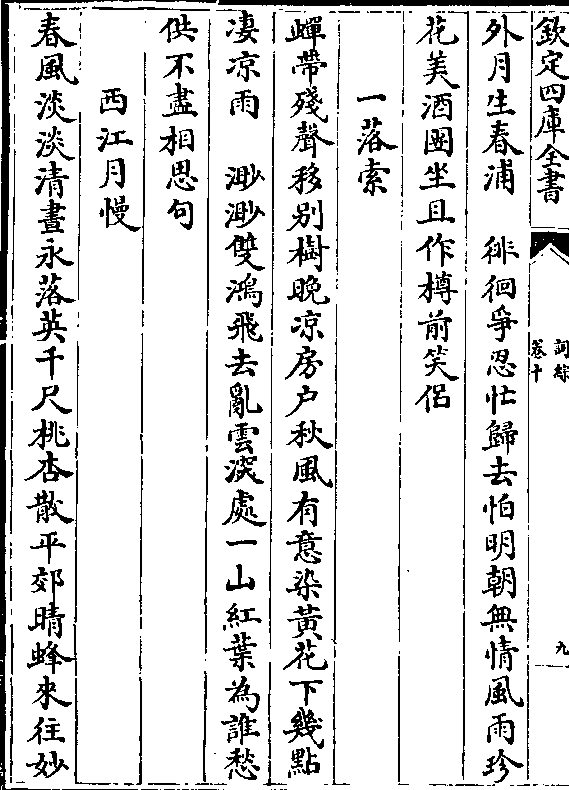 欽定四庫全書
詞綜
卷十
九
外月生春浦　徘徊爭忍忙歸去怕明朝無情風雨珍
花美酒團坐且作樽前笑侶
一落索
蟬帶殘聲移别樹晚凉房户秋風有意染黃花下幾點
凄凉雨　渺渺雙鴻飛去亂雲深處一山紅葉為誰愁
供不盡相思句
西江月慢
春風淡淡清晝永落英千尺桃杏散平郊晴蜂來往妙